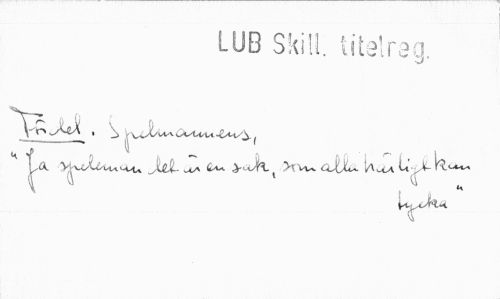 LUB Skill. titelreg.
Tös let. Spelmannens,
"Ja speleman let är en sak, som alla härligt kan
tycka"